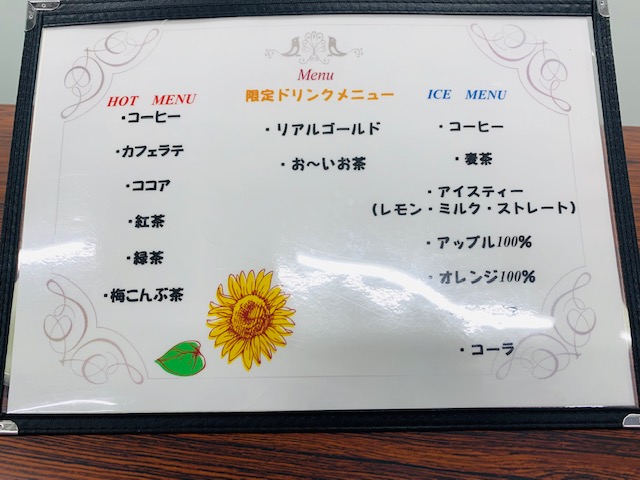 Menu
HOT MENU
・コーヒー
・カフェラテ
・ココア
・紅茶
・緑茶
・梅こんぶ茶
限定ドリンクメニュー
・リアルゴールド
・お〜いお茶
ICE MENU
・コーヒー
・麦茶
・アイスティー
（レモン・ミルク・ストレート）
・アップル100%
・オレンジ100%
・コーラ